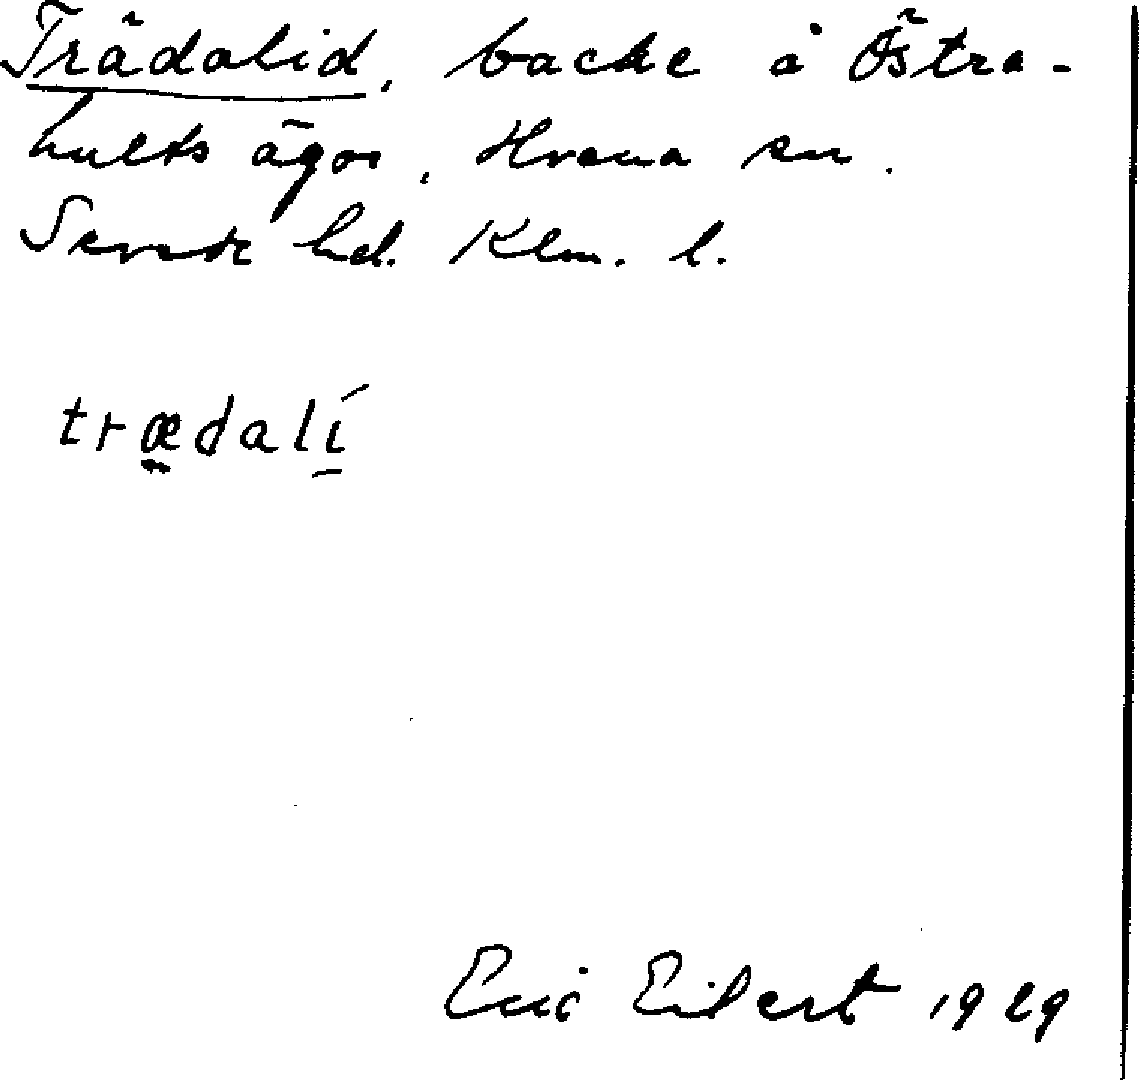 Trädalid, backe å Östra-
hults ägor, Hvena sn.
Sevede hd. Klm. l.
trædalí
Eric Eilert 1929